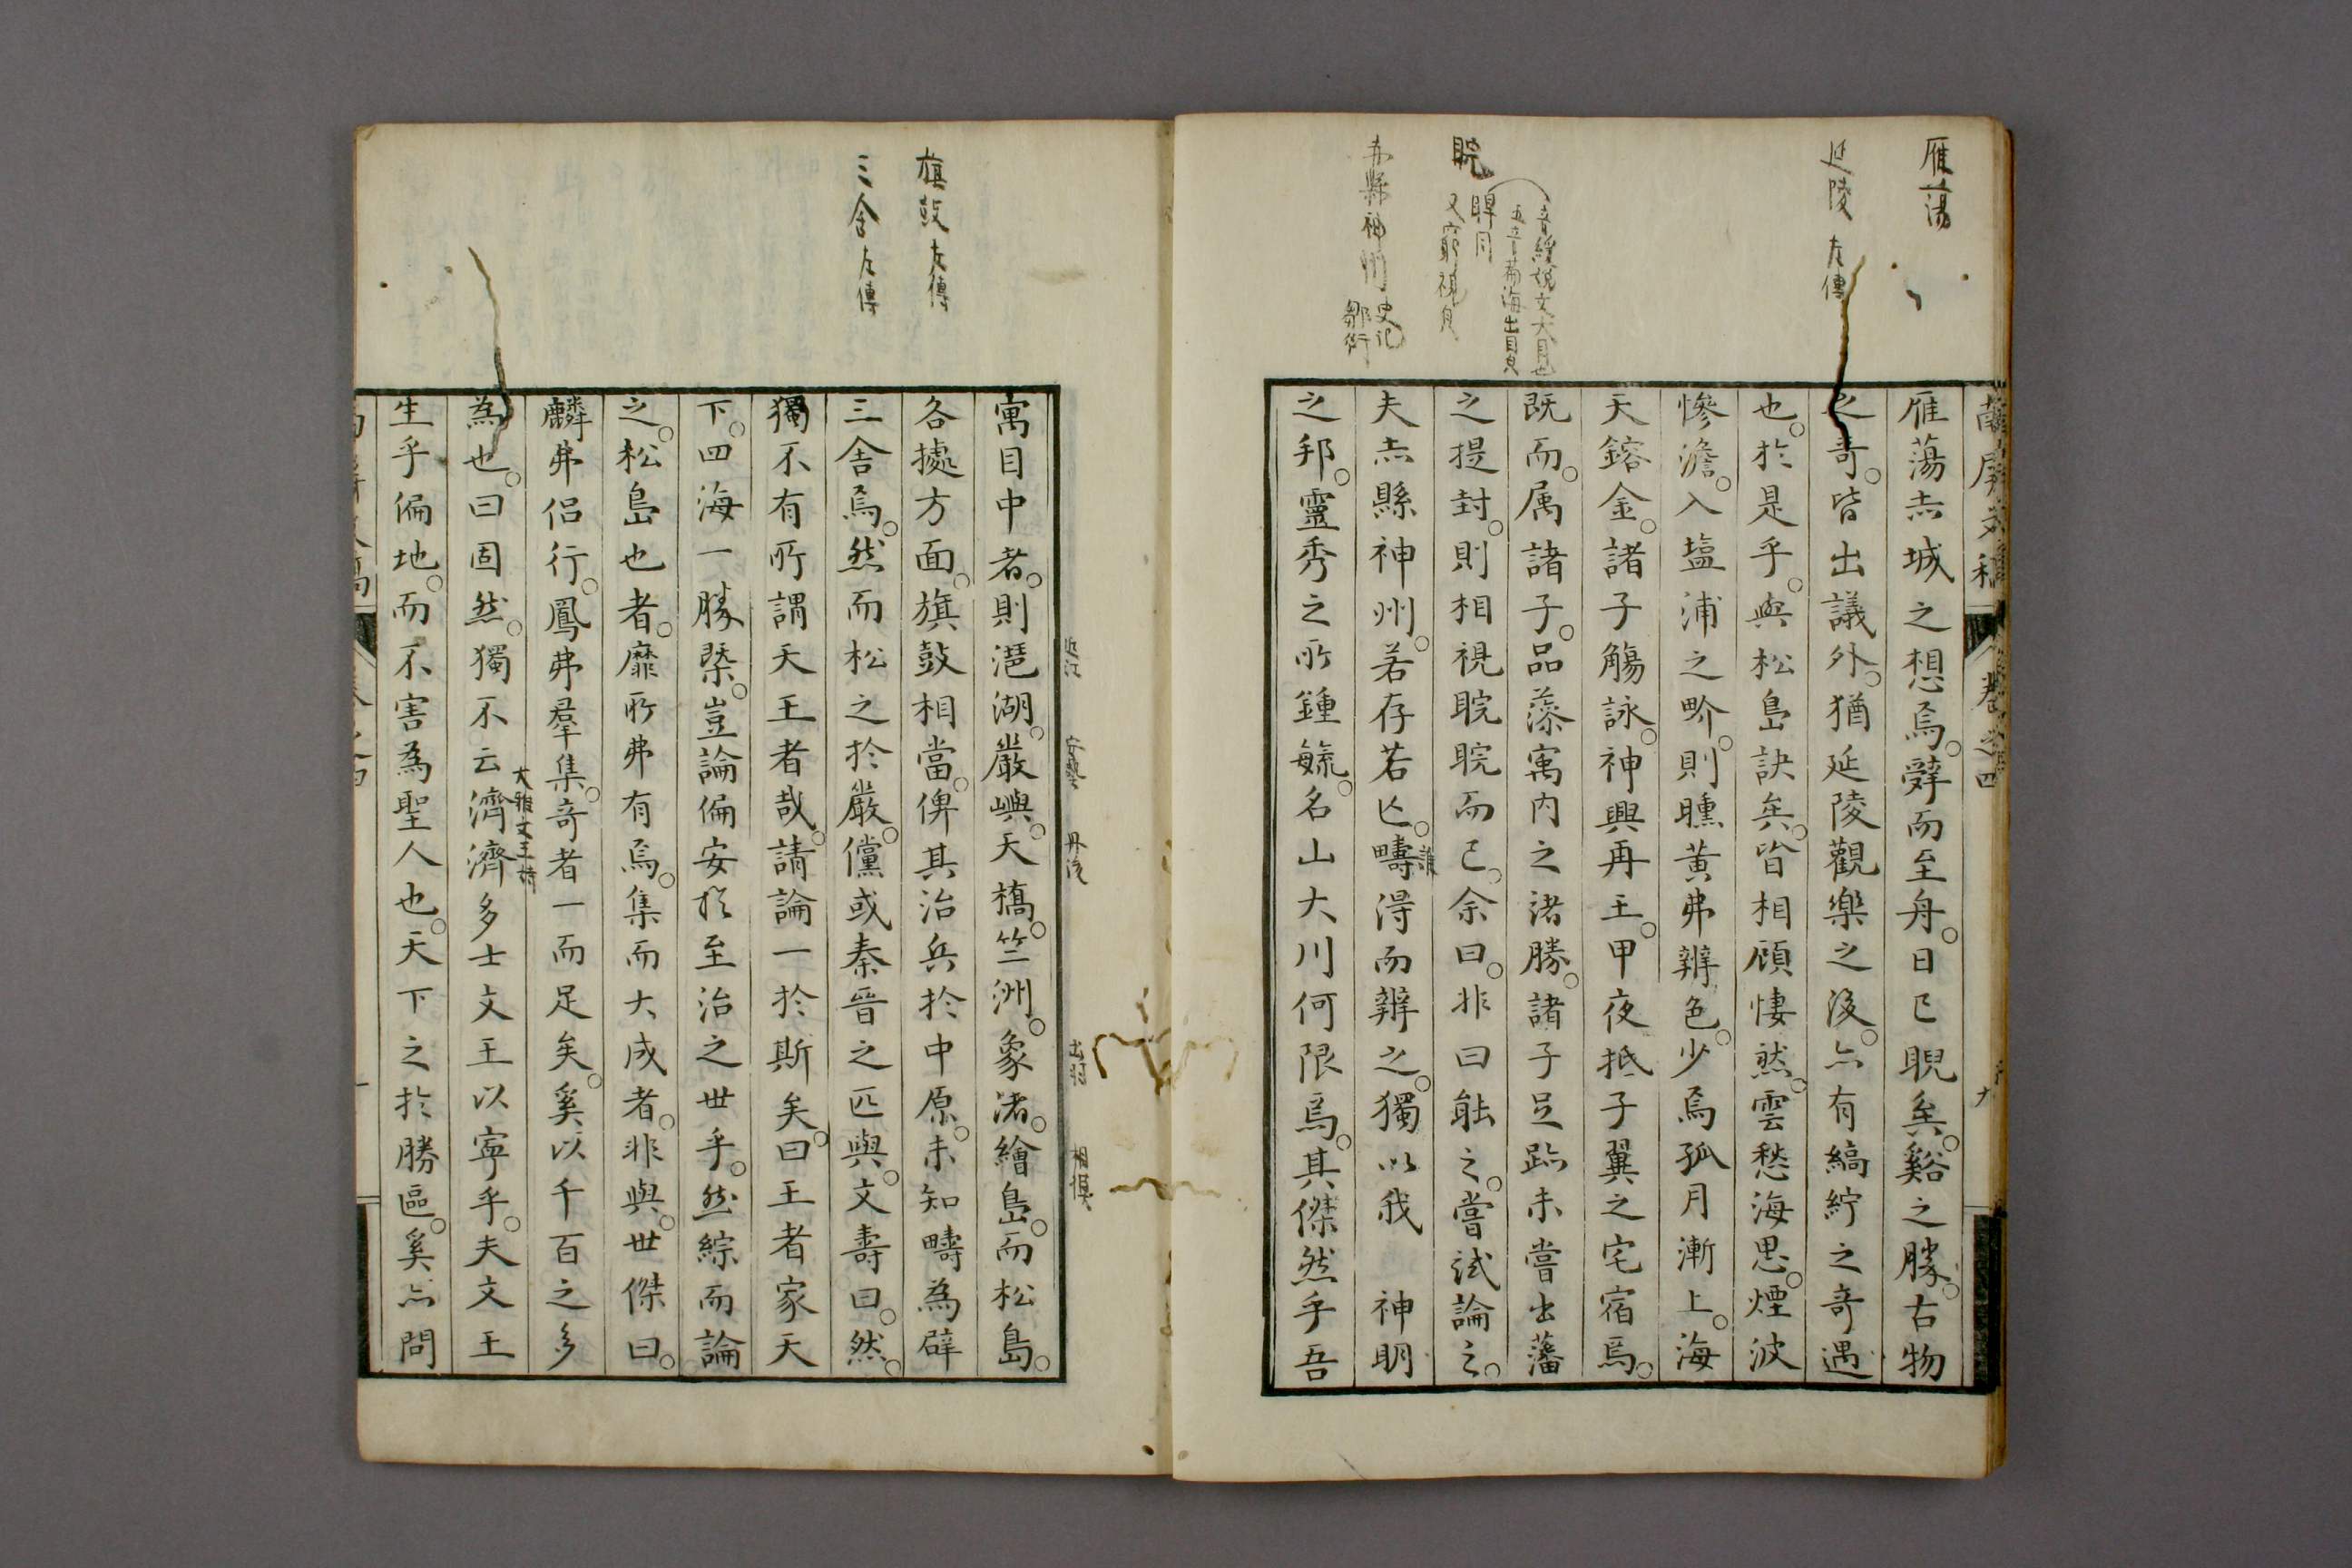 雁蕩
延陵 左傳
睆
睥同
又窮視皃
赤縣神州 史記
鄒衍
蘭屏文稿 卷之四
雁蕩赤城之想焉。辤而至舟。日已睨矣。谿之勝。古物
之奇。皆出議外。猶延陵觀樂之後。亦有縞紵之奇遇
也。於是乎。與松島訣矣。皆相顧悽然。雲愁海思。煙波
慘澹。入塩浦之畍。則曛黃弗辨色。少焉孤月漸上。海
天鎔金。諸子觴詠。神興再王。甲夜抵子翼之宅宿焉。
既而。属諸子。品藻寓内之諸勝。諸子足跡未嘗出藩
之提封。則相視睆睆而已。余曰。非曰能之。嘗試論之。
夫赤縣神州。若存若亾。疇得而辨之。獨以我 神明
之邦。靈秀之所鍾毓。名山大川何限焉。其傑然乎吾
誰
旗鼓 左傳
三舍 左傳
近江 安藝 丹後 出羽 相模
寓目中者。則琵湖。嚴嶼。天橋。竺洲。象渚。繪島。而松島。
各據方面。旗鼓相當。俾其治兵於中原。未知疇為辟
三舍焉。然而松之於嚴。儻或秦晉之匹與。文壽曰。然。
獨不有所謂天王者哉。請論一於斯矣。曰王者家天
下。四海一勝槩。豈論偏安於至治之世乎。然綜而論
之。松島也者。靡所弗有焉。集而大成者。非與。世傑曰。
麟弗侶行。鳳弗羣集。奇者一而足矣。奚以千百之多
為也。曰固然。獨不云濟濟多士文王以寧乎。夫文王
大雅文王詩
生乎偏地。而不害為聖人也。天下之於勝區。奚亦問